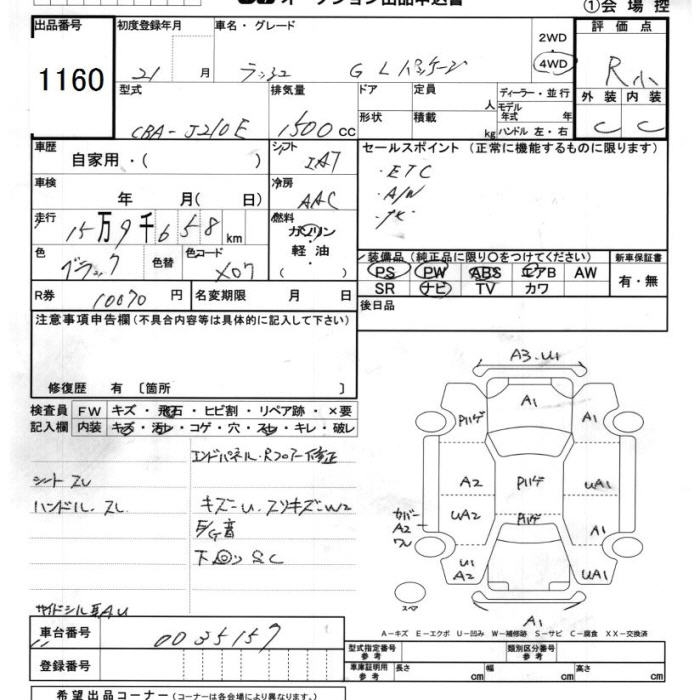 オークション出品申込書
①会場控
出品番号 1160
初度登録年月 21 月
車名・グレード ラッシュ G Lパッケージ
2WD
4WD
評価点 R小
外装 内装
C C
型式 CBA-J210E
排気量 1500 cc
ドア
定員 人
ディーラー・並行
形状
積載 kg
モデル年式 年式
ハンドル 左・右
車歴 自家用・( )
シフト IAT
セールスポイント (正常に機能するものに限ります)
・ETC
・A/W
車検 年 月( 日)
冷房 AAC
走行 15万9千658 km
燃料 ガソリン
軽油
( )
色 ブラック 色替 色コード X07
装備品 (純正品に限り○をつけてください)
新車保証書
PS PW ABS エアB AW
SR ナビ TV カワ
有・無
R券 10070 円
名変期限 月 日
後日品
注意事項申告欄 (不具合内容等は具体的に記入して下さい)
修復歴 有 〔箇所 〕
検査員記入欄 FW キズ・飛石・ヒビ割・リペア跡・×要
内装 キズ・汚れ・コゲ・穴・スレ・キレ・破レ
エンドパネル・Rフロアー修正
シートスレ
ハンドル・スレ
キズーU.スリキズーW2
E/G音
下回りS.C
サイドシル耳AU
A3.U1
A1
Pハゲ
A1
A2
Pハゲ
UA1
UA2
Pハゲ
A1
カバー
A2
ワレ
U1
A2
UA1
スペア
A1
A-キズ E-エクボ U-凹み W-補修跡 S-サビ C-腐食 XX-交換済
車台番号 0035157
登録番号
型式指定番号 参考
類別区分番号 参考
車庫証明用 参考 長さ cm 幅 cm 高さ cm
希望出品コーナー (コーナーは各会場により異なります。)